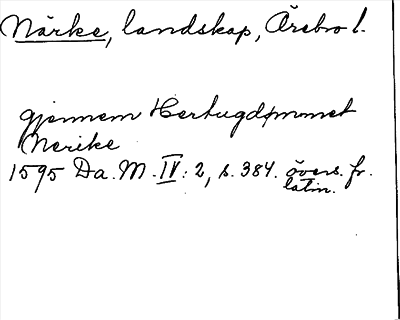 Närke, landskap, Örebro l.
gjennem Hertugdømmet
Nerike
1595 Da. M. IV: 2, s. 384. övers. fr. latin.